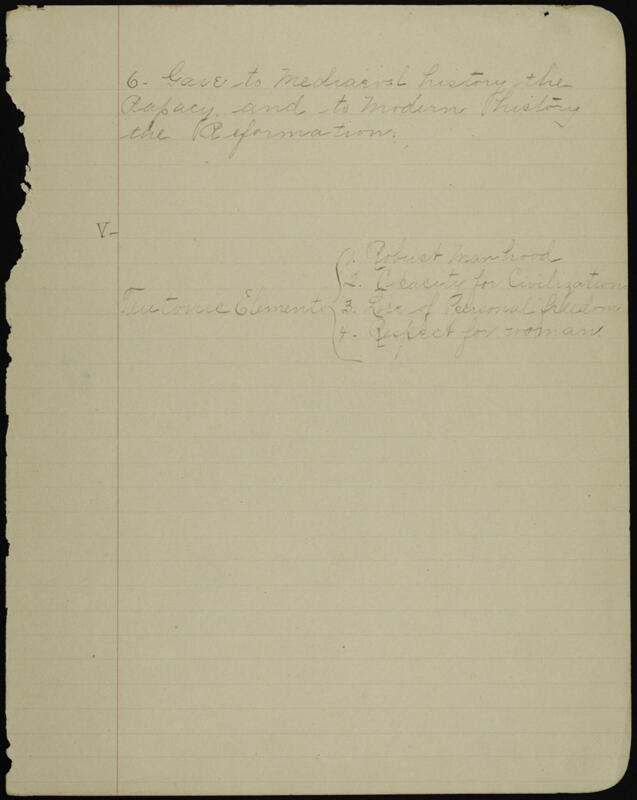 6- Gave to Mediaeval history the
Papacy, and to Modern history
the Reformation.
V-
Teutonic Elements
1. Robust Manhood
2. Capacity for Civilization
3. Love of Personal freedom
4- Respect for woman